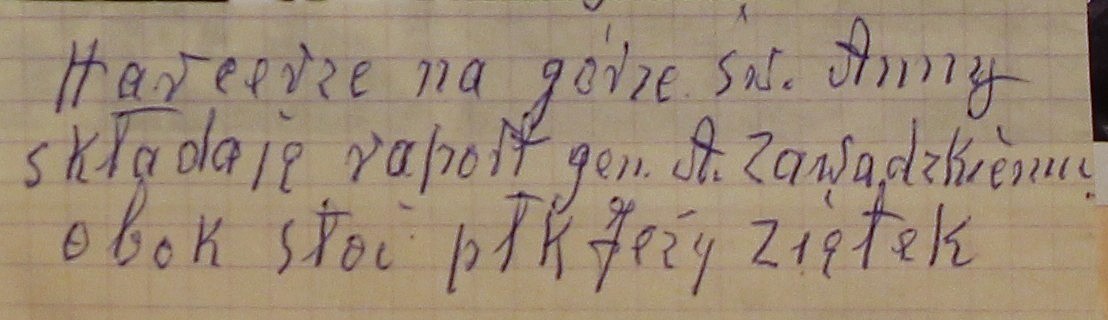 Harcerze na górze św. Anny
składają raport gen. A. Zawadzkiemu
obok stoi płk Jeży Ziętek